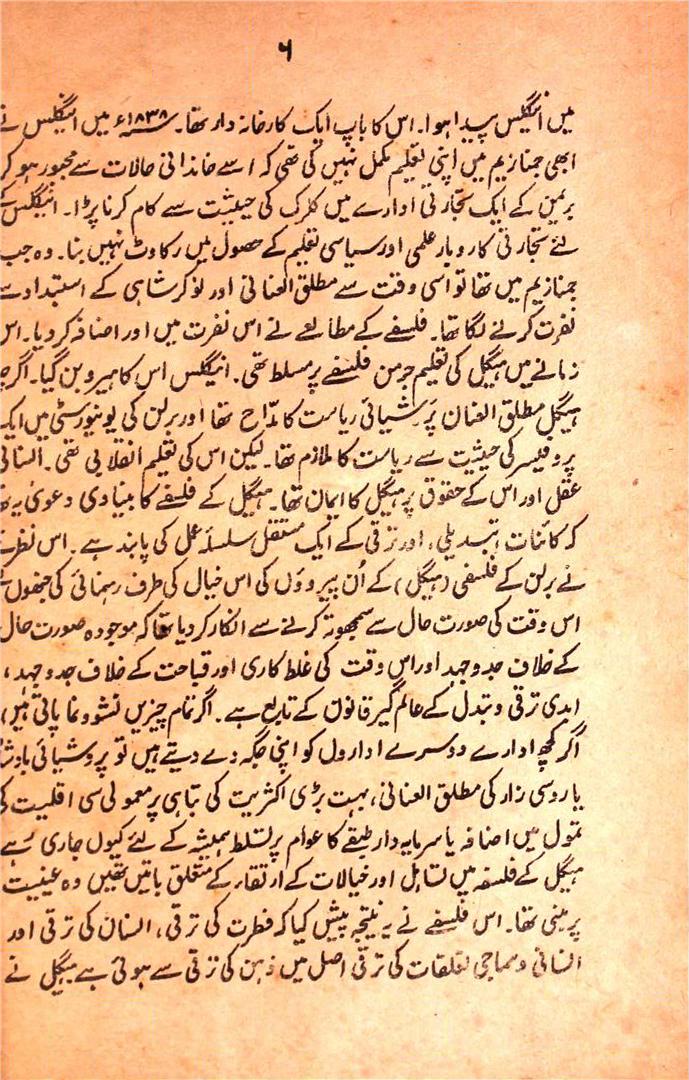 ۶
میں اینگلس پیدا ہوا۔ اس کا باپ ایک کارخانہ دار تھا۔ ۱۸۳۸ء میں اینگلس نے
ابھی جمنازیم میں اپنی تعلیم مکمل نہیں کی تھی کہ اسے خاندانی حالات سے مجبور ہو کر
بریمن کے ایک تجارتی ادارے میں کلرک کی حیثیت سے کام کرنا پڑا۔ اینگلس کے
لئے تجارتی کاروبار علمی اور سیاسی تعلیم کے حصول میں رکاوٹ نہیں بنا۔ وہ جب
جمنازیم میں تھا تو اسی وقت سے مطلق العنانی اور نوکر شاہی کے استبداد سے
نفرت کرنے لگا تھا۔ فلسفے کے مطالعے نے اس نفرت میں اور اضافہ کر دیا۔ اس
زمانے میں ہیگل کی تعلیم جرمن فلسفے پر مسلط تھی۔ اینگلس اس کا ہیرو بن گیا۔ اگرچہ
ہیگل مطلق العنان پرشیائی ریاست کا مدّاح تھا اور برلن کی یونیورسٹی میں ایک
پروفیسر کی حیثیت سے ریاست کا ملازم تھا۔ لیکن اس کی تعلیم انقلابی تھی۔ انسانی
عقل اور اس کے حقوق پر ہیگل کا ایمان تھا۔ ہیگل کے فلسفے کا بنیادی دعویٰ یہ تھا
کہ کائنات، تبدیلی، اور ترقی کے ایک مستقل سلسلۂ عمل کی پابند ہے۔ اس نظریے
نے برلن کے فلسفی (ہیگل) کے اُن پیروؤں کی اس خیال کی طرف رہنمائی کی جنھوں نے
اس وقت کی صورت حال سے سمجھوتہ کرنے سے انکار کر دیا تھا کہ موجودہ صورت حال
کے خلاف جدوجہد اور اس وقت کی غلط کاری اور قباحت کے خلاف جدوجہد،
ابدی ترقی و تبدل کے عالم گیر قانون کے تابع ہے۔ اگر تمام چیزیں نشوونما پاتی ہیں،
اگر کچھ ادارے دوسرے اداروں کو اپنی جگہ دے دیتے ہیں تو پروشیائی بادشاہ
یا روسی زار کی مطلق العنانی، بہت بڑی اکثریت کی تباہی پر معمولی سی اقلیت کے
تمول میں اضافہ یا سرمایہ دار طبقے کا عوام پر تسلط ہمیشہ کے لئے کیوں جاری رہے
ہیگل کے فلسفہ میں اور خیالات کے ارتقاء کے متعلق باتیں تھیں وہ عینیت
پر مبنی تھا۔ اس فلسفے نے یہ نتیجہ پیش کیا کہ فطرت کی ترقی، انسان کی ترقی اور
انسانی و سماجی تعلقات کی ترقی اصل میں ذہن کی ترقی سے ہوتی ہے ہیگل نے